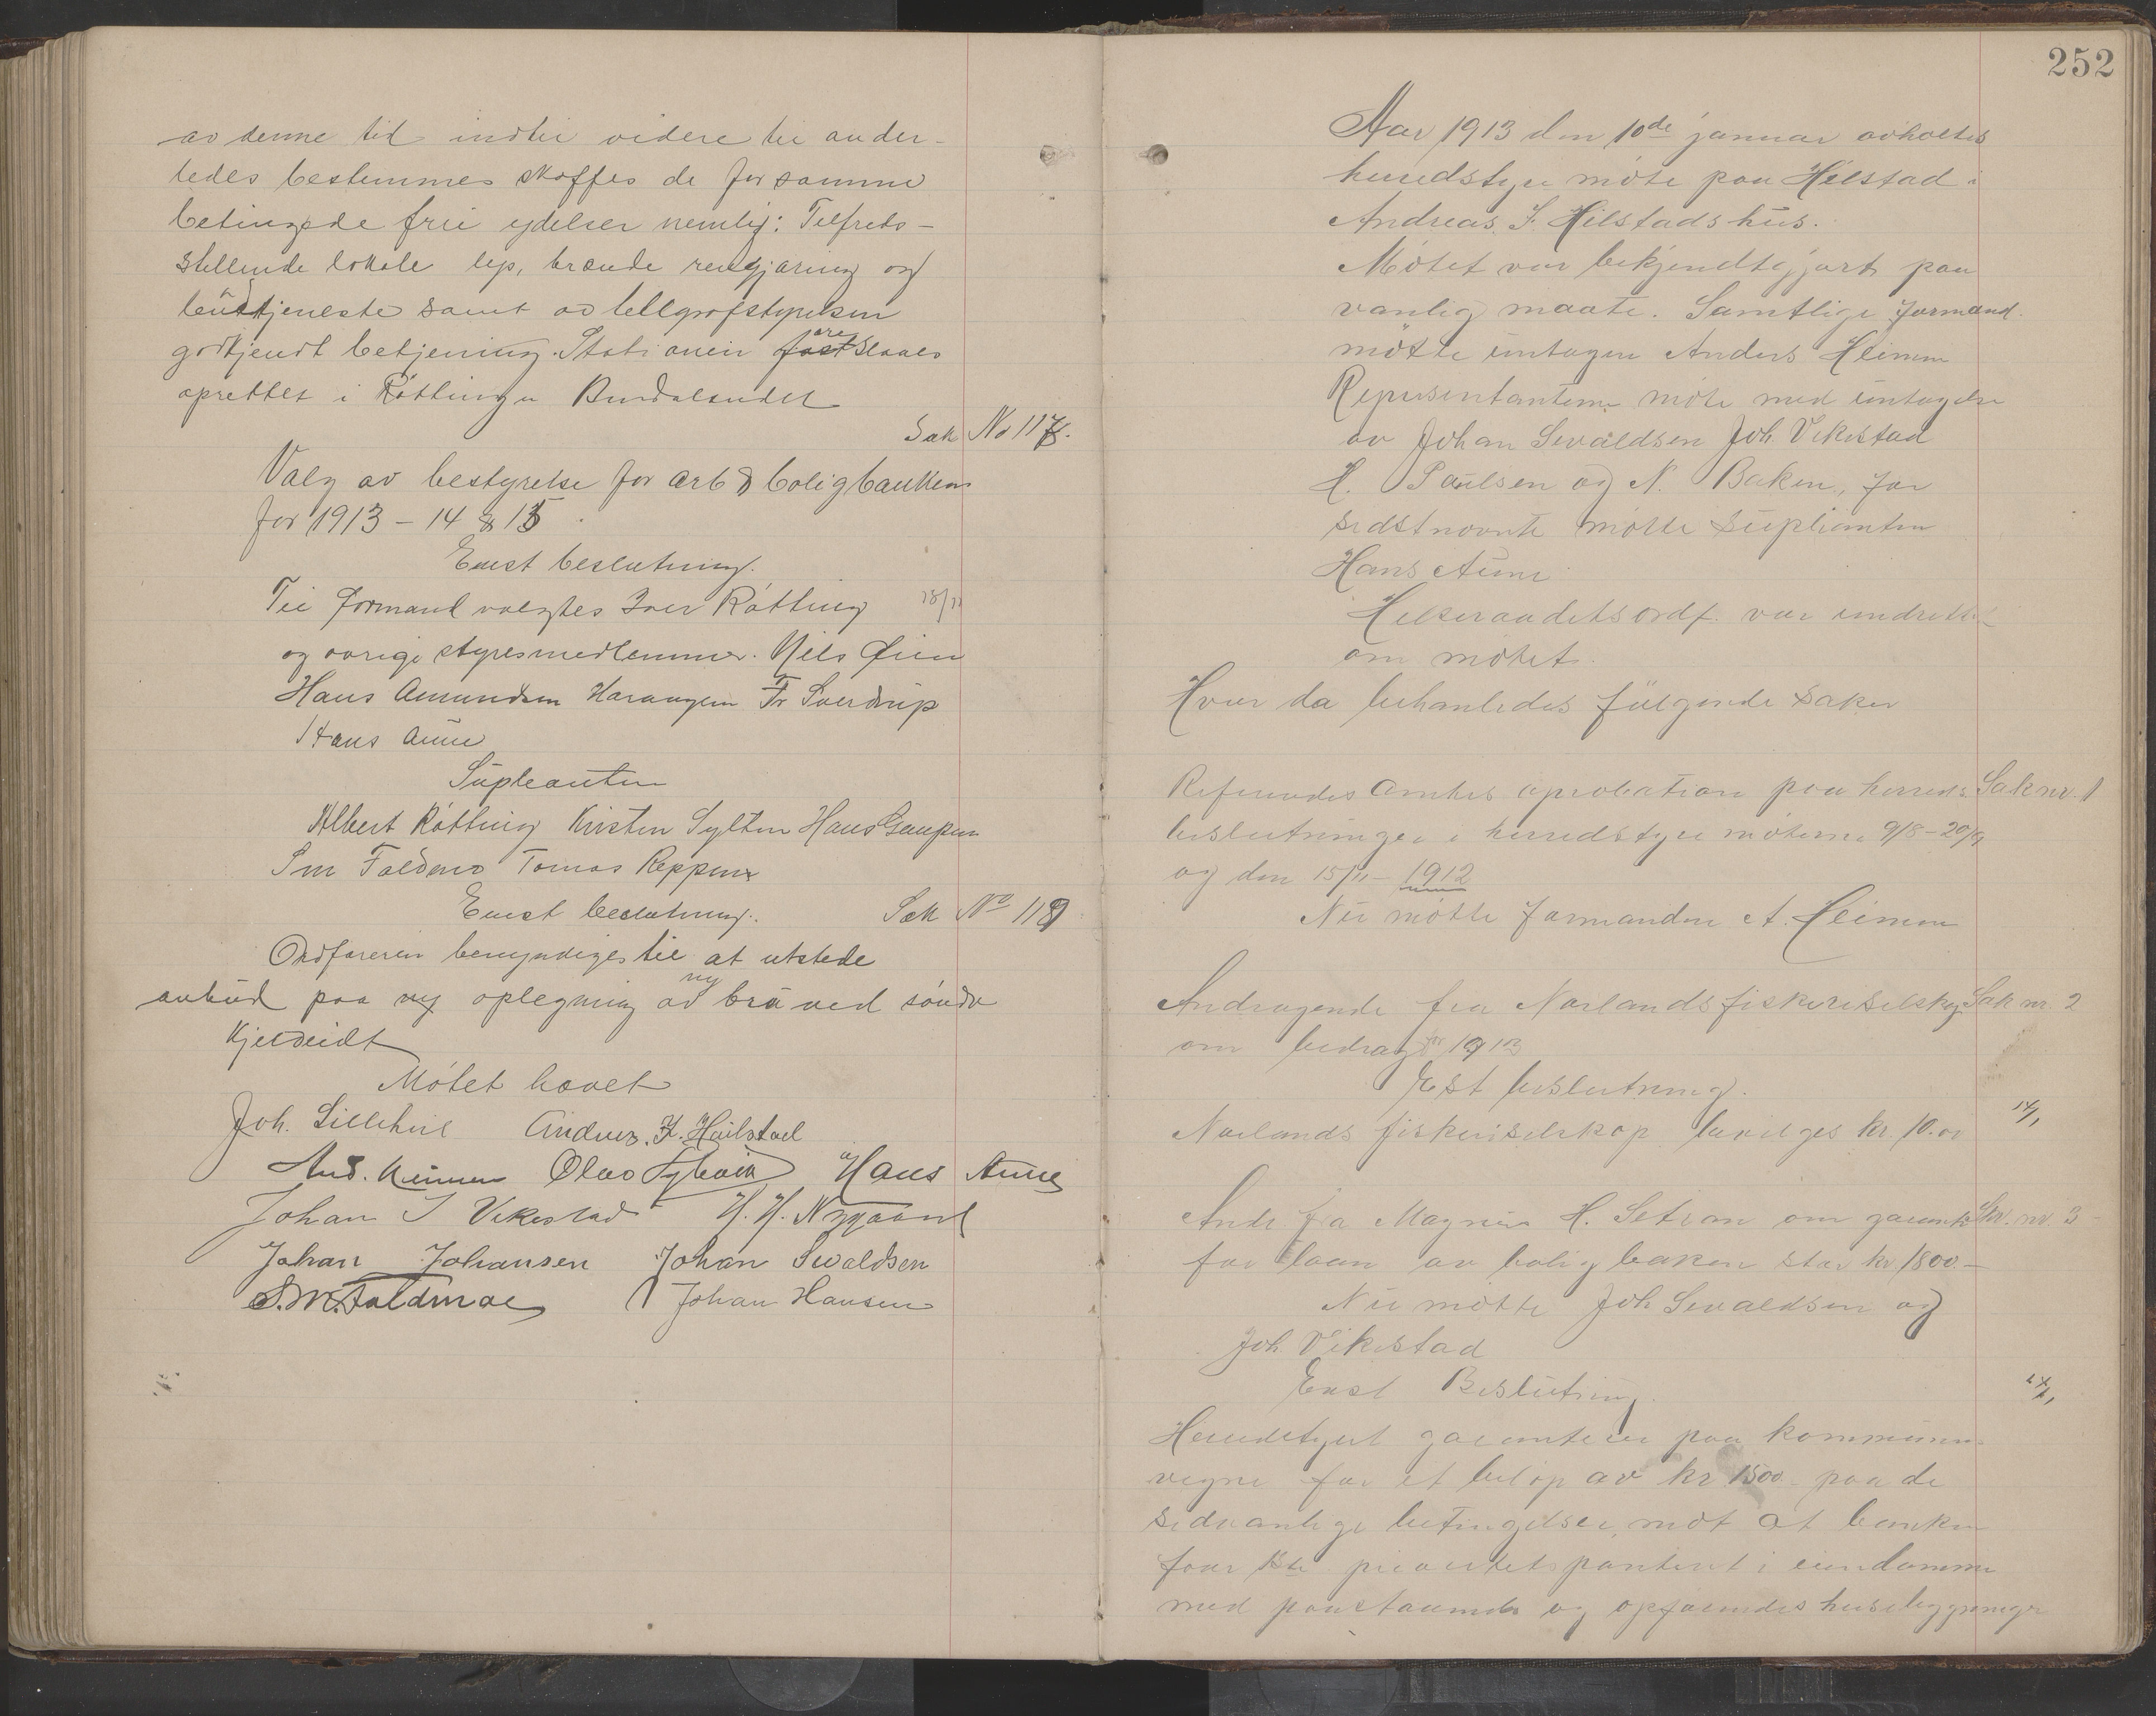 av denne tid indtil videre til ander-
ledes bestemmes skaffes de for samme
betingede frie ydelser nemlig: Tilfreds-
stillende lokale lys, brænde rengjøring og
budtjeneste samt av tellgrafstyrelsen
godkjendt betjening. Stationen foreslaaes
oprettet i Røttingen Bindalseidet
Sak No 118.
Valg av bestyrelse for arb & boligbanken
for 1913 – 14 & 15.
Enst beslutning.
Til formand valgtes Iver Røtting
og øvrige styresmedlemmer. Nils Øien
Hans Amundsen Harangen Fr Sverdrup
Hans Aune
Supleanter
Albert Røtting Kristen Sylten Hans Gaupen
S m Foldmo Tomas Reppen
Enst beslutning. Sak No 119
Ordføreren bemyndiges til at utstede
anbud paa oplegning av ny bru ved søndr
Kjeldeidt
Møtet hævet
Joh. Lillehiil Andreas. K. Heilstad
And. Heimen Olav Hans Aune
Johan I Vikestad H. H. Nygaard
Johan Johansen Johan Sivaldsen
S. M. Foldmoe Johan Hansen
252
Aar 1913 den 10de januar avholdtes
herredstyre møte paa Heilstad i
Andreas. S. Hilstads hus.
Møtet var bekjendtgjort paa
vanlig maate. Samtlige formænd.
møtte untagen Anders Heimen
Representanterne møtte med untagelse
av Johan Sivaldsen Joh. Vikestad
H. Paulsen og N. Bakken, for
sidstnævnte møtte supleanten
Hans Aune
Helseraadets ordf. var undrettet
om møtet.
Hvor da behandledes følgende saker
Refereredes amtets aprobation paa herreds Sak nr. 1
beslutninger i herredstyre møterne 9/8 – 20/9
og den 15/11 – 1912
Nu møtte formanden A. Heimen
Andragende fra Norlands fiskeriselskap Sak nr. 2
om bedrag for 1913
Est beslutning.
14/1
Norlands fiskeriselskap bevilges kr. 10.00
Andr fra Magnus H. Setran om garanti Sak. nr. 3
for laan av bolig banken stor kr 1800 –
Nu møtte Joh Sivaldsen og
Joh Vikestad
Enst Beslutning.
14/1
Herredstyret garanterer paa kommunens
vegne for et beløp av kr 1500 – paa de
sedvanlige betingelser, mot at banken
faar 1ste prioritets panteret i eiendommen
med paastaaende og opførendes husebygninger